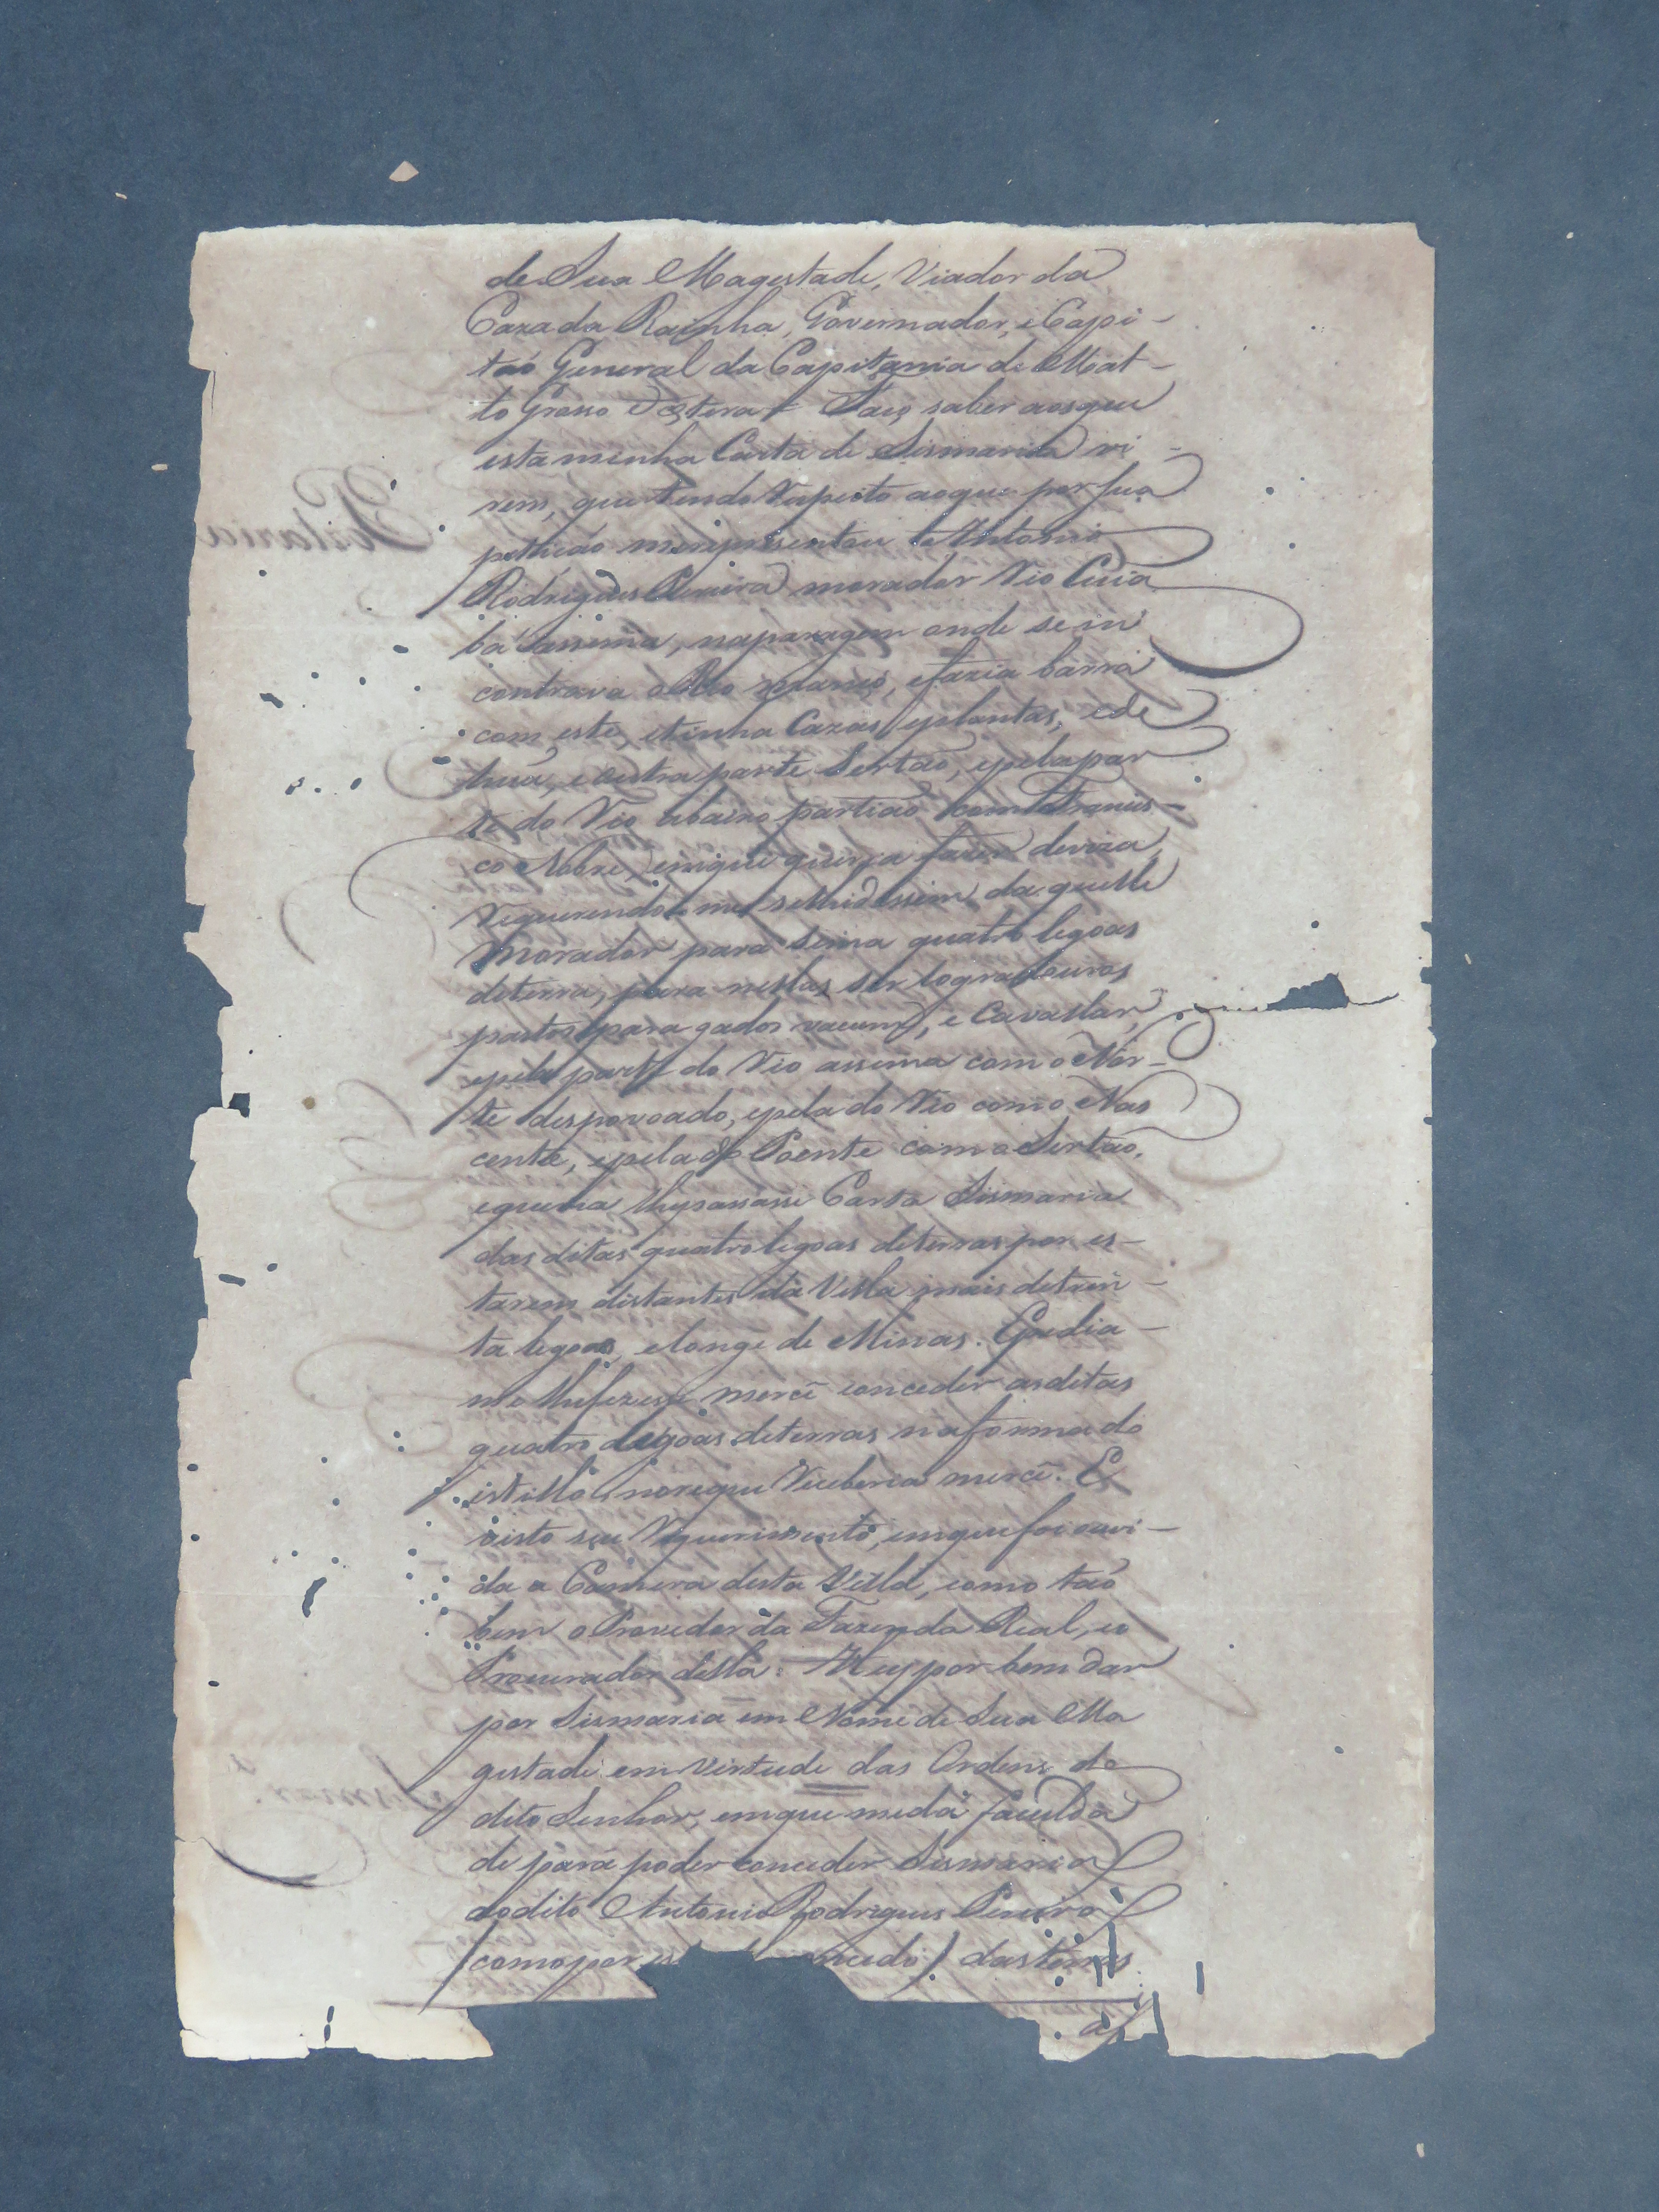 de Sua Magestade, Viador da
Caza da Rainha, Governador, e Capi-
taó General da Capitania de Mat-
to Grosso Faço saber aos que
esta minha Carta de Sismaria vi-
rem, que tendo Respeito ao que por sua
petiçáo me reprezentou Antonio
Rodrigues Pereira morador Rio Cuia
bá assima, na paragem onde se in
contrava o Rio e fazia barra
com este, e tinha Cazas, e plantas, e de
huá, e outra parte Sertaó, e pela par
te do Rio abaixo partiaó com Francis-
co Nobre, em que queria fazer deviza,
Requerendo-me daquelle
Morador para sima quatro legoas
de terra, para nestas ter logradouros
pastos para gados vacum, e Cavallar,
e pela parte do Rio assima com o Nor-
te despovoado, e pela do Rio com o Nas
cente, e pela do Poente com o Sertaó,
e queria lhe passasse Carta Sismaria
das ditas quatro legoas de terras por es-
tarem distantes da Villa mais de trin-
ta legoas, e longe de Minas. E pedia-
me lhe fizesse mercê conceder as ditas
quatro legoas de terras na forma do
estillo, no que Receberia mercê. E
visto seu Requerimento, em que foi ouvi-
da a Camera desta Villa, como taó
bem o Provedor da Fazenda Real, e o
Procurador della: Hey por bem dar
por Sismaria em Nome de Sua Ma
gestade em virtude das Ordens do
dito Senhor, em que me dá faculda
de para poder conceder Sismaria
ao dito Antonio Rodrigues Pereira
(como por das terras
as